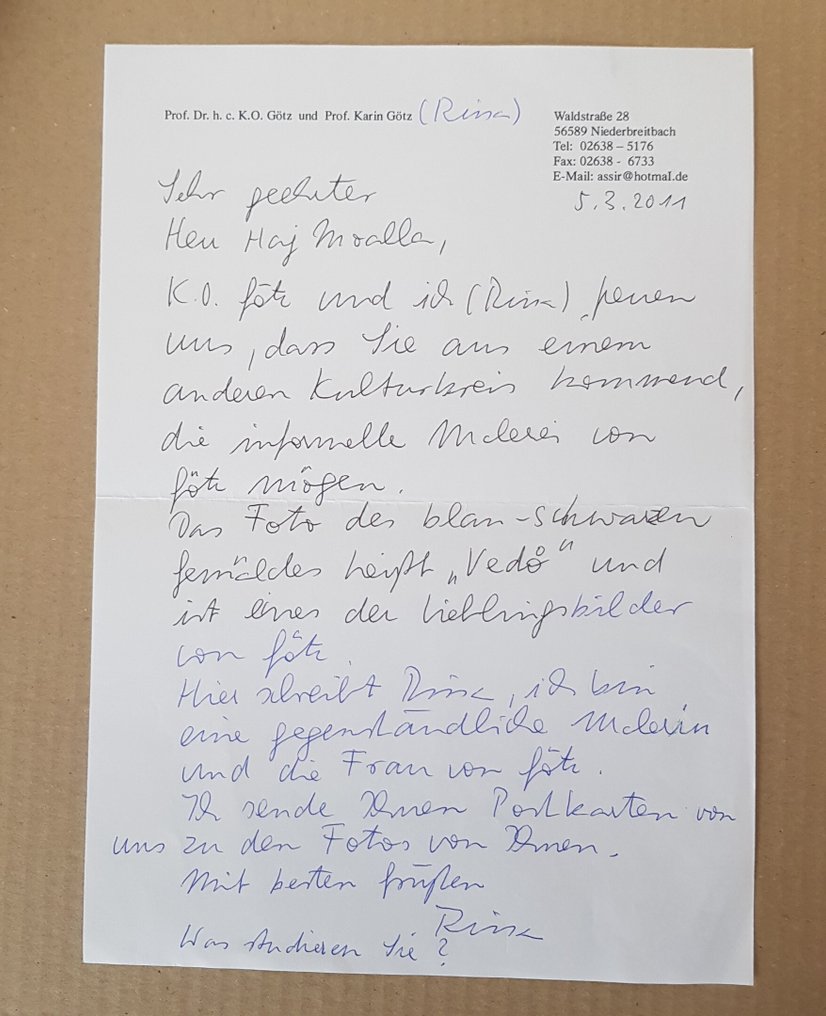 Prof. Dr. h. c. K.O. Götz und Prof. Karin Götz (Rissa)
Waldstraße 28
56589 Niederbreitbach
Tel: 02638 – 5176
Fax: 02638 - 6733
E-Mail: assir@hotmaI.de
5.3.2011
Sehr geehrter
Herr Haj Moalla,
K.O. Götz und ich (Rissa) freuen
uns, dass Sie aus einem
anderen Kulturkreis kommend,
die informelle Malerei von
Götz mögen.
Das Foto des blau-schwarzen
Gemäldes heißt „Vedå" und
ist eines der Lieblingsbilder
von Götz.
Hier schreibt Rissa, ich bin
eine gegenständliche Malerin
und die Frau von Götz.
Ich sende Ihnen Postkarten von
uns zu den Fotos von Ihnen.
Mit besten Grüßen
Rissa
Was studieren Sie?